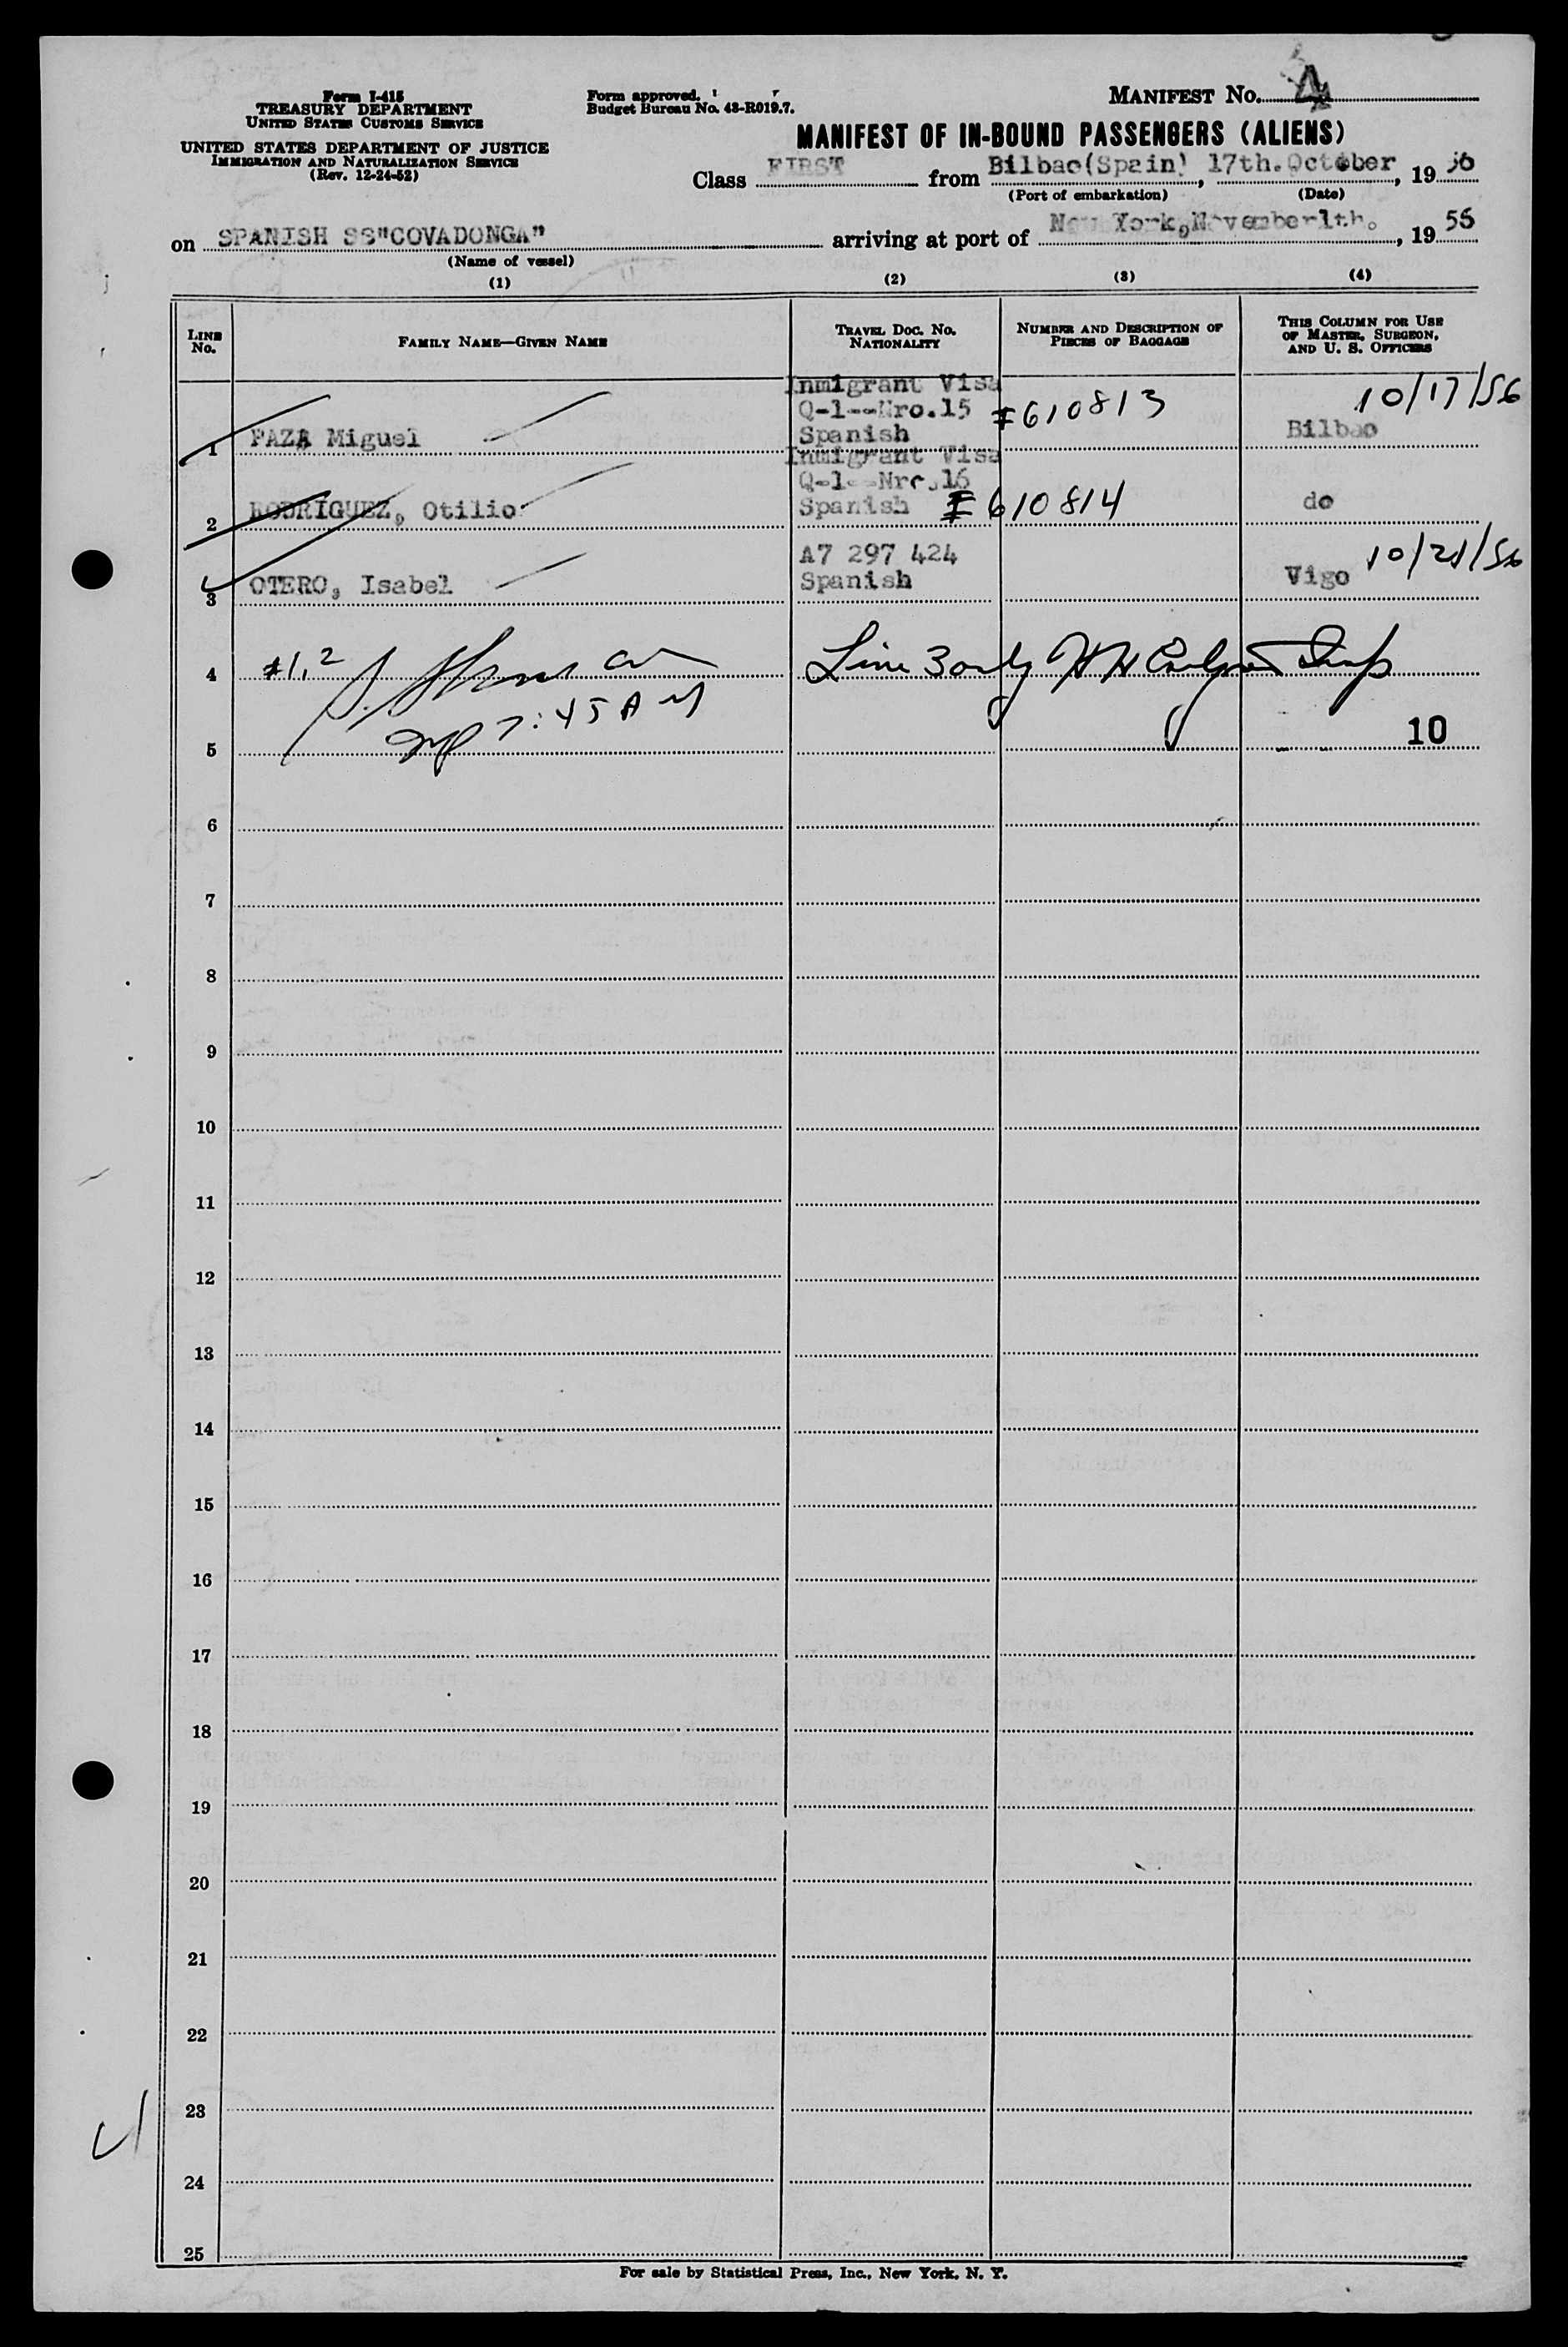 Form I-415
TREASURY DEPARTMENT
UNITED STATES CUSTOMS SERVICE
UNITED STATES DEPARTMENT OF JUSTICE
IMMIGRATION AND NATURALIZATION SERVICE
(Rev. 12-24-52)
Form approved.
Budget Bureau No. 43-R019.7.
MANIFEST No. 4
MANIFEST OF IN-BOUND PASSENGERS (ALIENS)
Class FIRST from Bilbao(Spain), 17th.October, 1956
(Port of embarkation) (Date)
on SPANISH SS"COVADONGA" arriving at port of New York,November1th., 1956
(Name of vessel)
(1) (2) (3) (4)
LINE No. FAMILY NAME—GIVEN NAME TRAVEL DOC. NO. NATIONALITY NUMBER AND DESCRIPTION OF PIECES OF BAGGAGE THIS COLUMN FOR USE OF MASTER, SURGEON, AND U. S. OFFICERS
Inmigrant Visa 10/17/56
Q-1--Nro.15 I 610813
1 PAZ, Miguel Spanish Bilbao
Inmigrant Visa
Q-1--Nro.16
2 RODRIGUEZ, Otilio Spanish I 610814 do
A7 297 424 10/21/56
3 OTERO, Isabel Spanish Vigo
4 #1,2 Line 3 only
5 7:45 AM 10
6
7
8
9
10
11
12
13
14
15
16
17
18
19
20
21
22
23
24
25
For sale by Statistical Press, Inc., New York, N. Y.